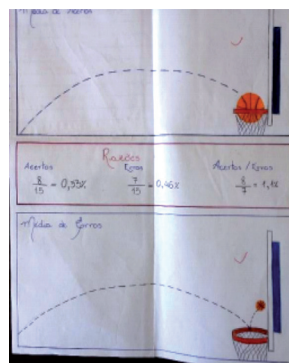 Média de
Razões
Acertos
8/15 = 0,53%
Erros
7/15 = 0,46%
Acertos / Erros
8/7 = 1,1%
Média de Erros